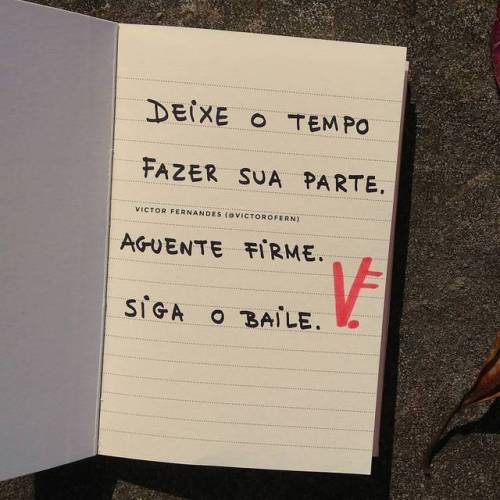 DEiXE O TEMPO
FAZER SUA PARTE.
VICTOR FERNANDES (@VICTOROFERN)
AGUENTE FiRME.
SiGA O BAiLE.
VF.